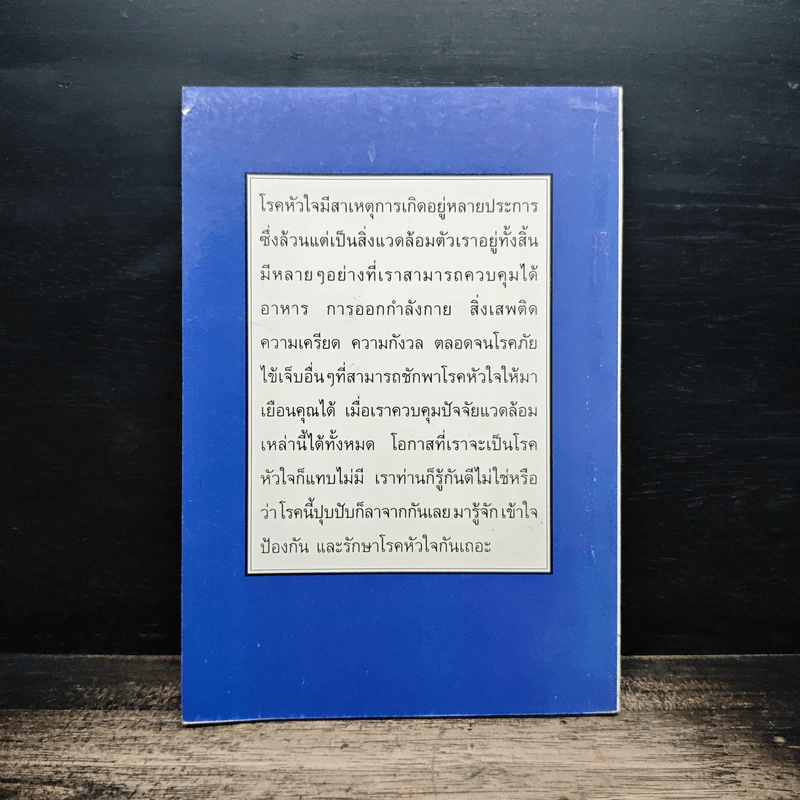 โรคหัวใจมีสาเหตุการเกิดอยู่หลายประการ
ซึ่งล้วนแต่เป็นสิ่งแวดล้อมตัวเราอยู่ทั้งสิ้น
มีหลายๆอย่างที่เราสามารถควบคุมได้
อาหาร การออกกำลังกาย สิ่งเสพติด
ความเครียด ความกังวล ตลอดจนโรคภัย
ไข้เจ็บอื่นๆที่สามารถชักพาโรคหัวใจให้มา
เยือนคุณได้ เมื่อเราควบคุมปัจจัยแวดล้อม
เหล่านี้ได้ทั้งหมด โอกาสที่เราจะเป็นโรค
หัวใจก็แทบไม่มี เราท่านก็รู้กันดีไม่ใช่หรือ
ว่าโรคนี้ปุบปับก็ลาจากกันเลย มารู้จัก เข้าใจ
ป้องกัน และรักษาโรคหัวใจกันเถอะ